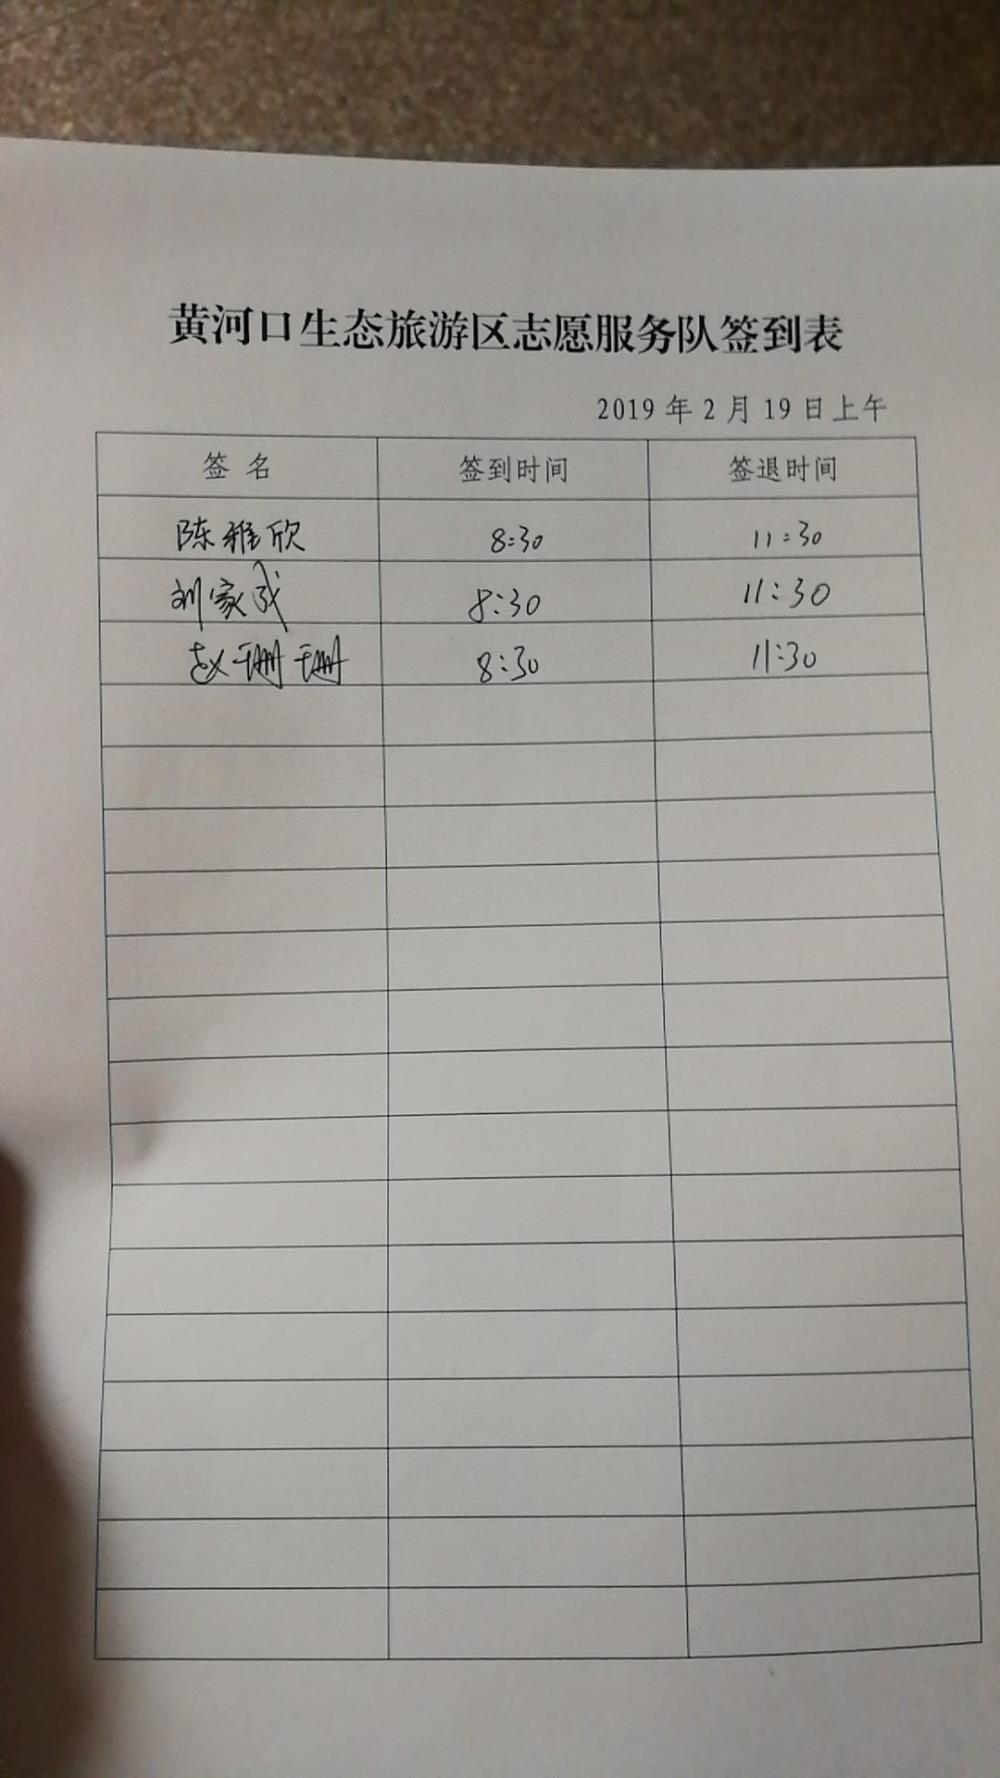 黄河口生态旅游区志愿服务队签到表
2019年2月19日上午
签 名 签到时间 签退时间
陈雅欣 8:30 11:30
刘家成 8:30 11:30
赵珊珊 8:30 11:30